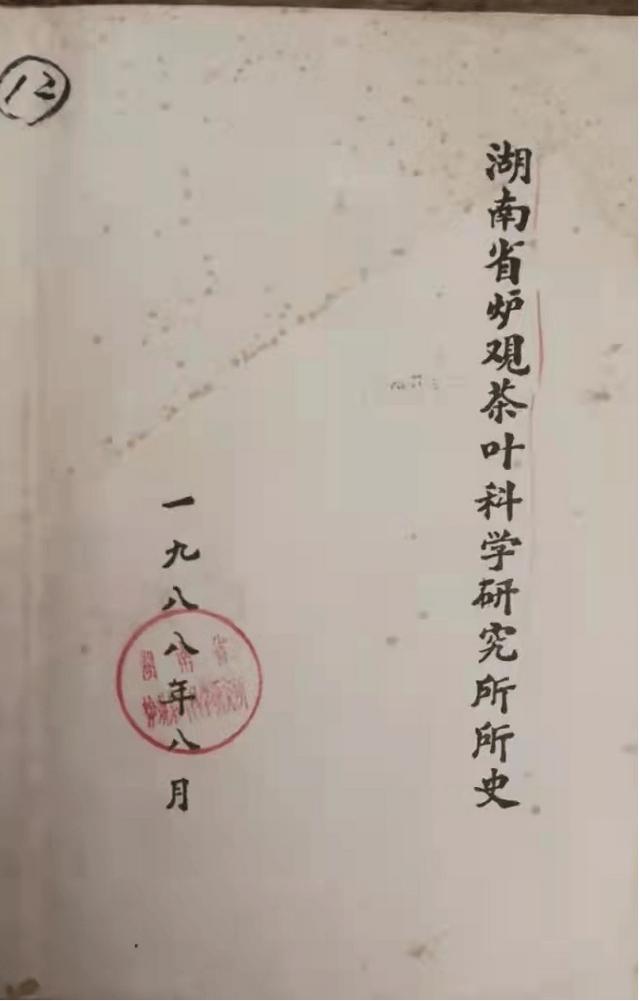 湖南省炉观茶叶科学研究所所史
一九八八年八月
12
湖南省